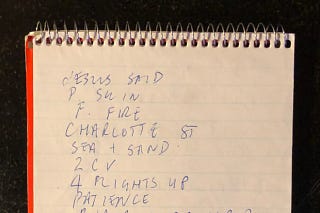 JESUS SAID
P. SKIN
F. FIRE
CHARLOTTE ST
SEA + SAND
2CV
4 FLIGHTS UP
PATIENCE